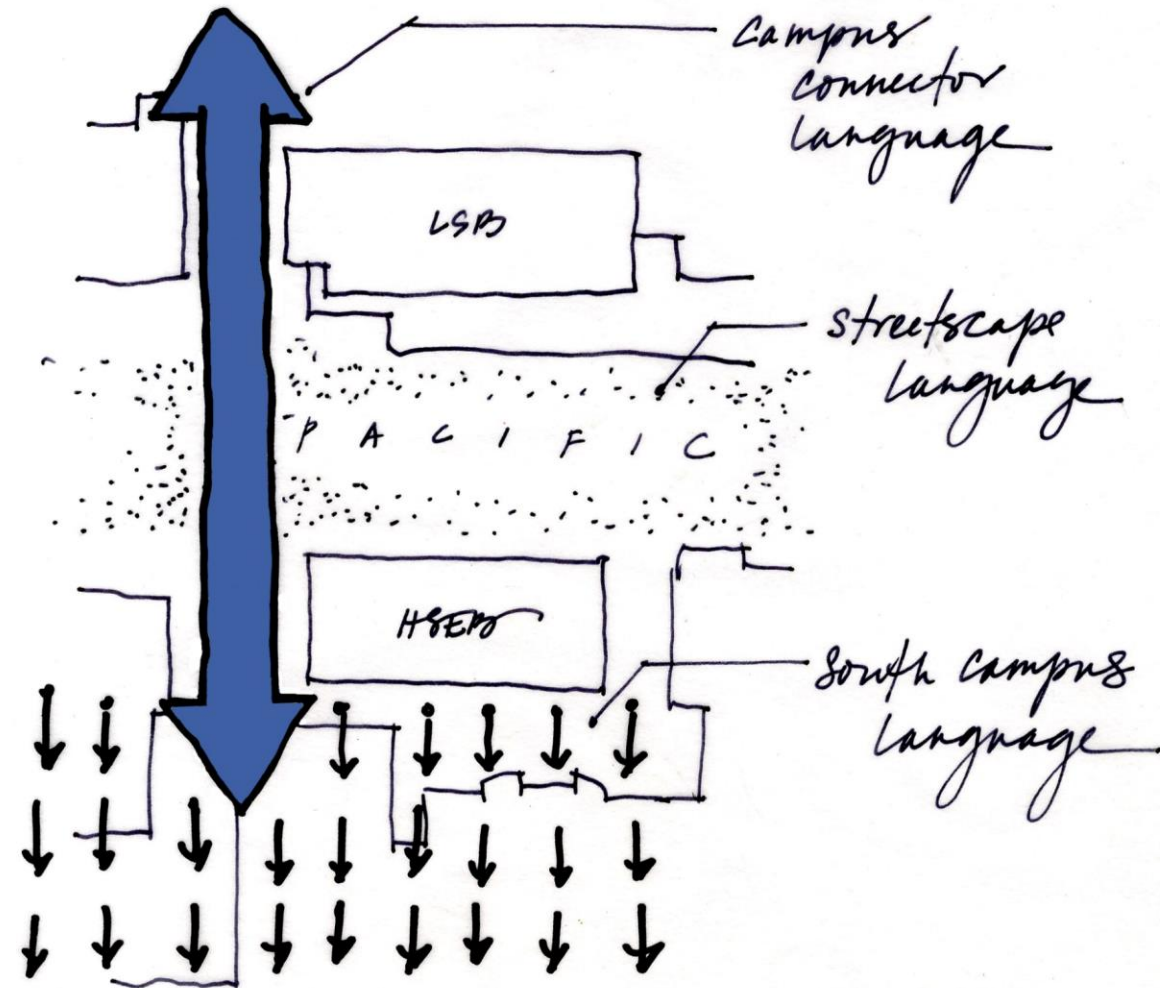 Campus
connector
language
LSB
streetscape
language
PACIFIC
HSEB
South campus
language